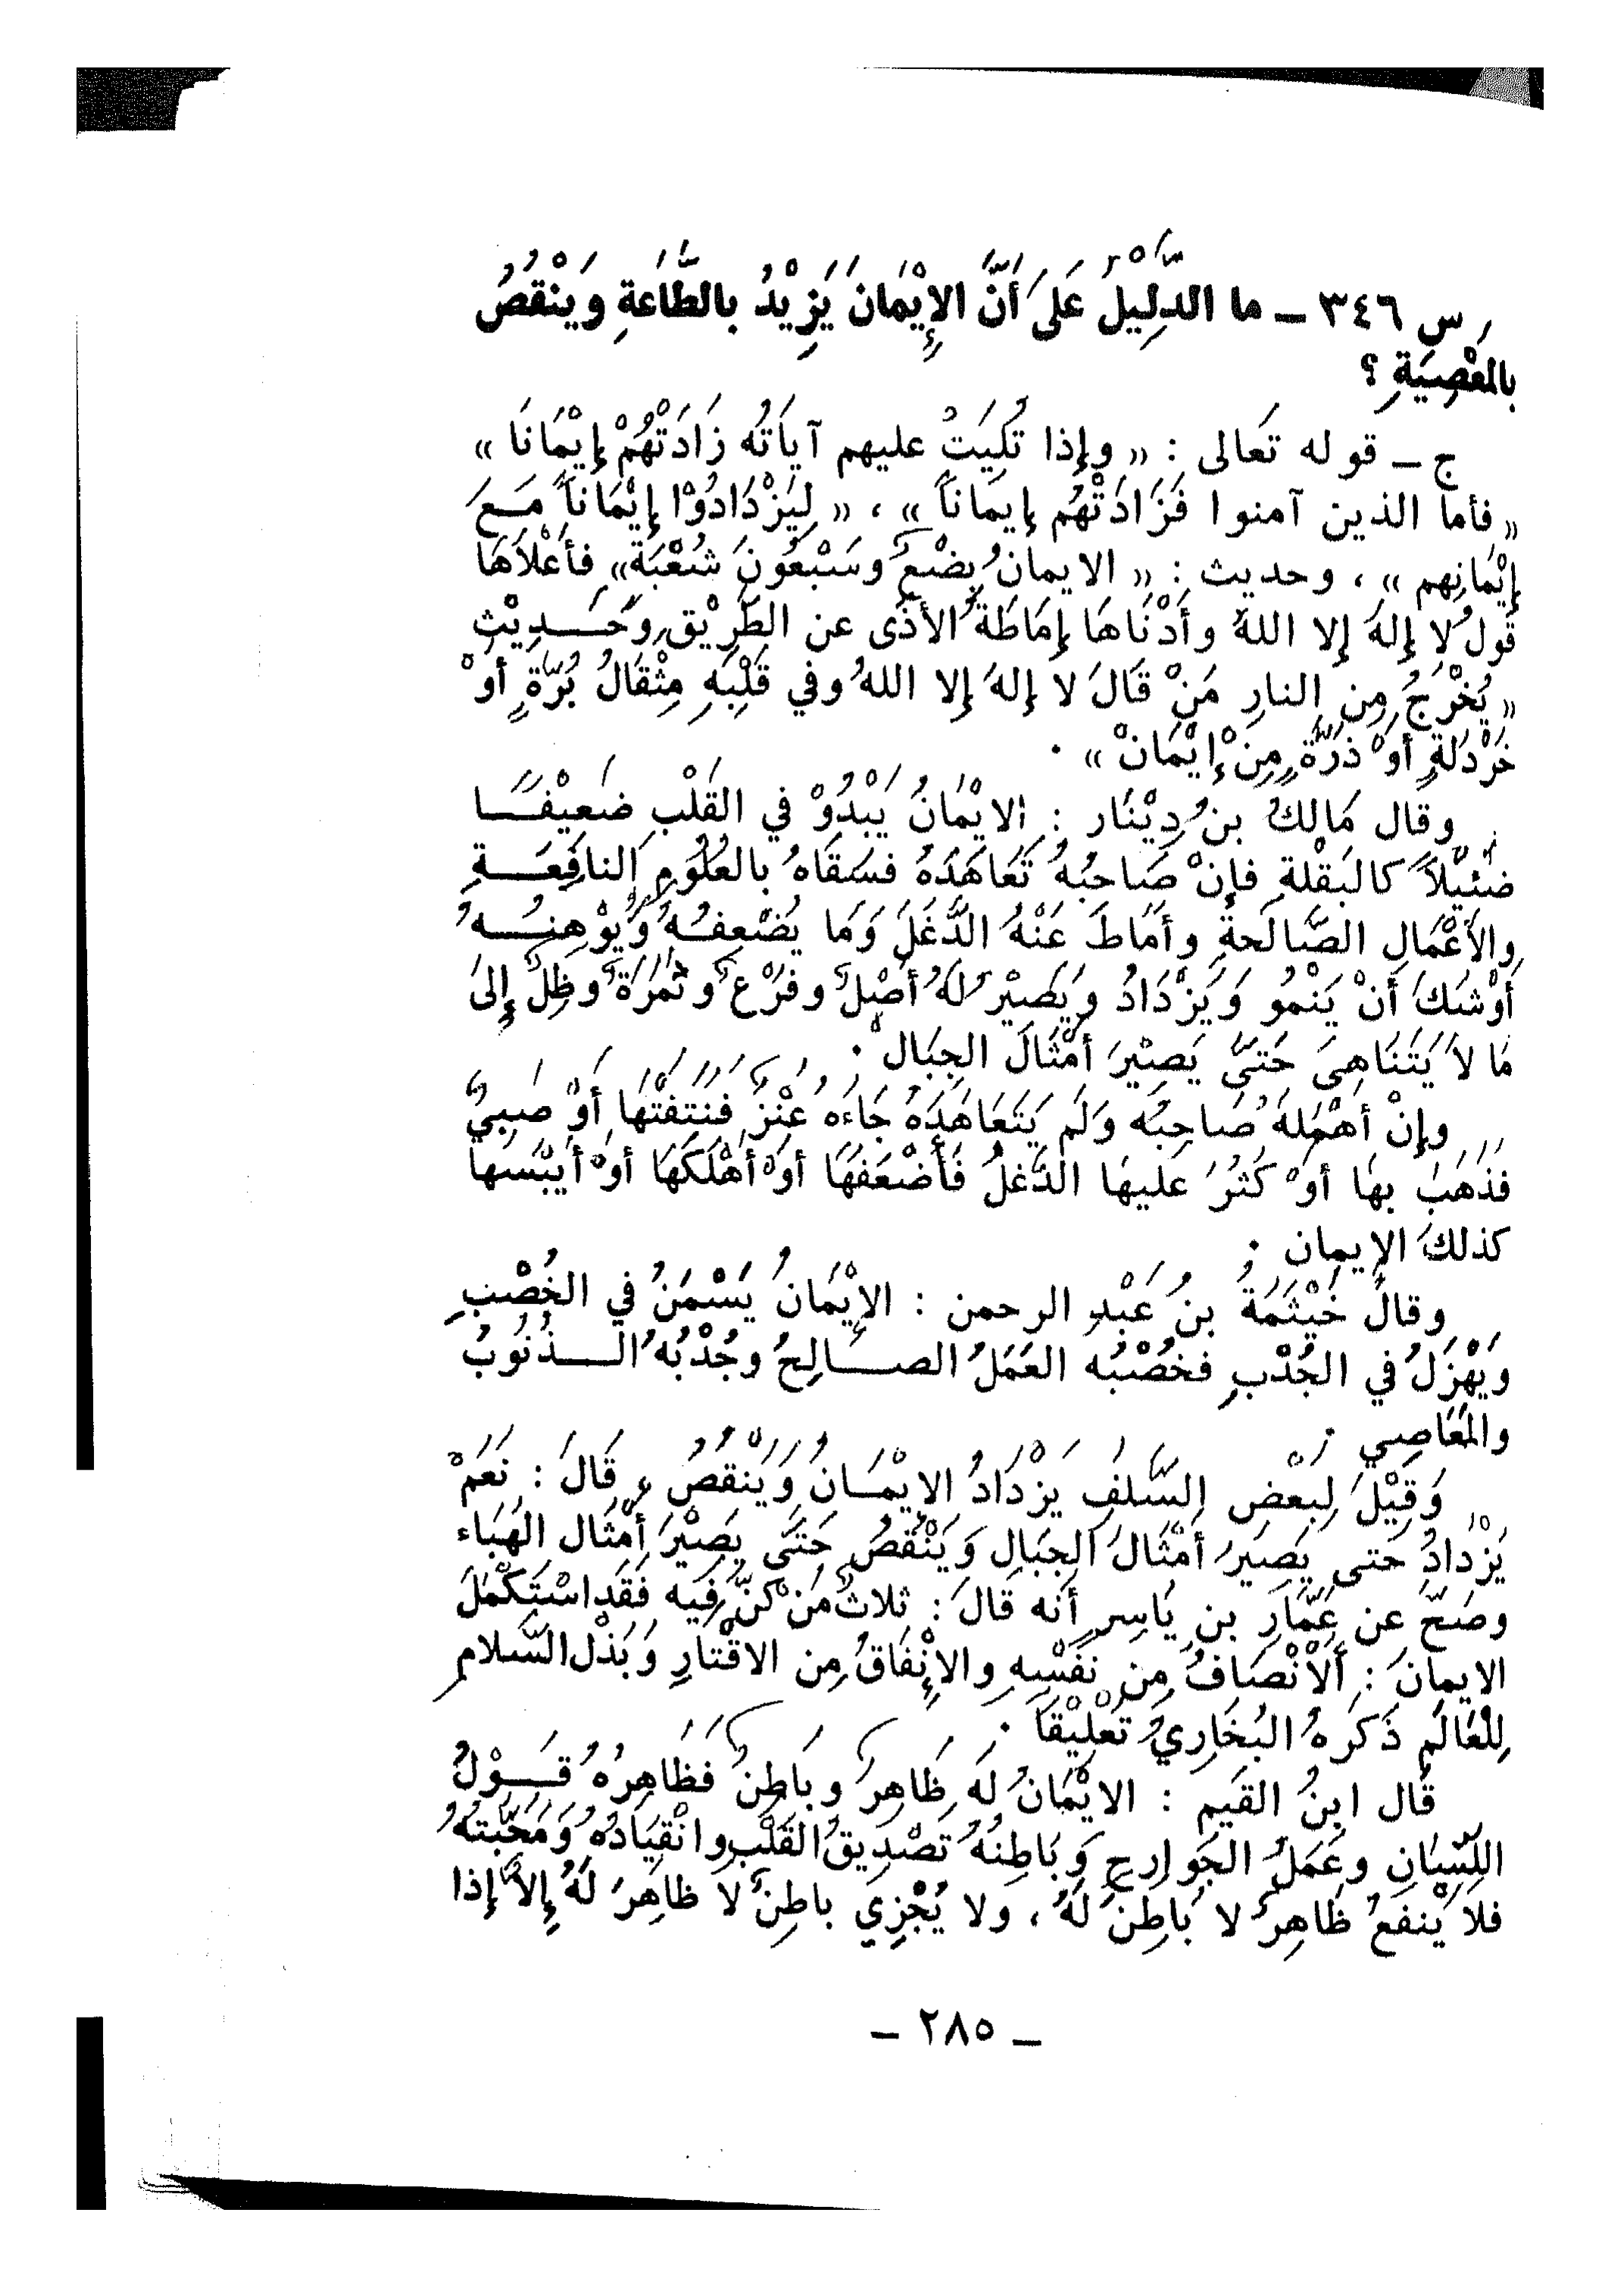 س ٣٤٦ ــ ما الدَّلِيْلُ عَلَى أَنَّ الإِيْمَانَ يَزِيْدُ بالطَّاعَةِ وَيَنْقُصُ
بالمَعْصِيَةِ ؟
ج ــ قوله تَعالى : « وإِذا تُلِيَتْ عليهم آيَاتُه زَادَتْهُمْ إِيْمَانَا »
« فأما الذين آمنوا فَزَادَتْهُم إِيمَاناً » ، « لِيَزْدَادُوْا إِيْمَاناً مَـعَ
إِيْمَانِهم » ، وحديث : « الايمانُ بِضْعٌ وسَبْعُونَ شُعْبَة» فأعْلاَهَا
قَولُ لا إِلهَ إِلا اللهُ وأَدْنَاهَا إِمَاطَةُ الأذَى عن الطَّرِيْقِ وَحَـــدِيْثِ
« يَخْرُجُ مِن النارِ مَنْ قَالَ لا إِلهَ إِلا اللهُ وفي قَلْبِهِ مِثْقَالُ بُرَّةٍ أَوْ
خَرْدَلَةٍ أَوْ ذَرَّةٍ مِنْ إِيْمَانْ » ٠
وقال مَالكُ بنُ دِيْنَار : الايْمَانُ يَبْدُوْ في القَلْبِ ضَعِيْفـــًـا
ضئيْلاً كالبَقْلَةِ فإِنْ صَاحِبُهُ تَعَاهَدَهُ فسَقَاهُ بالعُلُوْمِ النافِعَـــةِ
والأَعْمَالِ الصَّالحَةِ وأمَاطَ عَنْهُ الدَّغَلَ وَمَا يُضْعِفــُـهُ وَيُوْهِنـــُـهُ
أَوْشَكَ أَنْ يَنْمُو وَيَزْدَادُ وَيَصِيْرُ لَهُ أَصْلٌ وفَرْعٌ وثَمَرَةٌ وظِلٌ إِلىَ
مَا لاَ يَتَنَاهِىَ حَتَّى يَصِيْرَ أَمْثَالَ الجِبَال ٠
وإِنْ أَهْمَلَهُ صَاحِبُه وَلَم يَتَعَاهَدَهُ جَاءَه عَنْزٌ فَنَتَفَتْهَا أَوْ صَبِيٌ
فذَهَبَ بهَا أَوْ كَثُرُ عَليهَا الدَّغَلُ فَأَضْعَفَهَا أَوْ أَهْلَكَهَا أَوْ أَيْبَسَها
كذلكَ الإِيمان ٠
وقالَ خَيْثَمَةُ بنُ عَبْدِ الرحمن : الإِيْمَانُ يَسْمَنُ في الخُصْبِ
وَيَهْزَلُ في الجُدْبِ فخُصْبُه العَمَلُ الصــــالِحُ وجُدْبُه الـــــذُنُوبُ
والمَعَاصِي ٠
وَقِيْلَ لِبَعْضِ السَّلفِ يَزْدَادُ الايْمَـانُ وَيَنقصُ ، قَالَ : نَعَمْ
يَزْدَادُ حَتى يَصيرُ أَمْثَالَ الجِبَالِ وَيَنْقُصُ حَتَّى يَصِيْرَ أَمْثَال الهَبَاء
وصَحَّ عن عَمَّارِ بن يَاسِرٍ أَنه قَالَ : ثَلاثٌ مَنْ كُنَّ فِيَه فَقَداسْتَكْمَلَ
الايمانَ : أَلاَنْصَافُ مِن نَفْسِهِ والإِنْفَاقُ مِن الاقْتارِ وَبَذْل السَّلام
لِلْعَالَمِ ذَكَرهُ البُخَارِيُّ تَعْلِيْقَاً ٠
قَال ابنُ القَيم : الايْمَانُ لَه ظَاهِرٌ وبَاطِنٌ فظَاهِرُهُ قَـــوْلُ
اللِّسَانِ وعَمَلُ الجَوارِحِ وَبَاطِنُهُ تَصْدِيقُ القَلْبِ وانْقِيَادُهُ وَمَحَبَّتهُ
فلا يَنفعُ ظَاهِرٌ لا بَاطِنَ لَهُ ، ولا يُجْزِي باطِنٌ لا ظَاهِرَ لَهُ إِلاَّ إِذا
ــ ٢٨٥ ــ